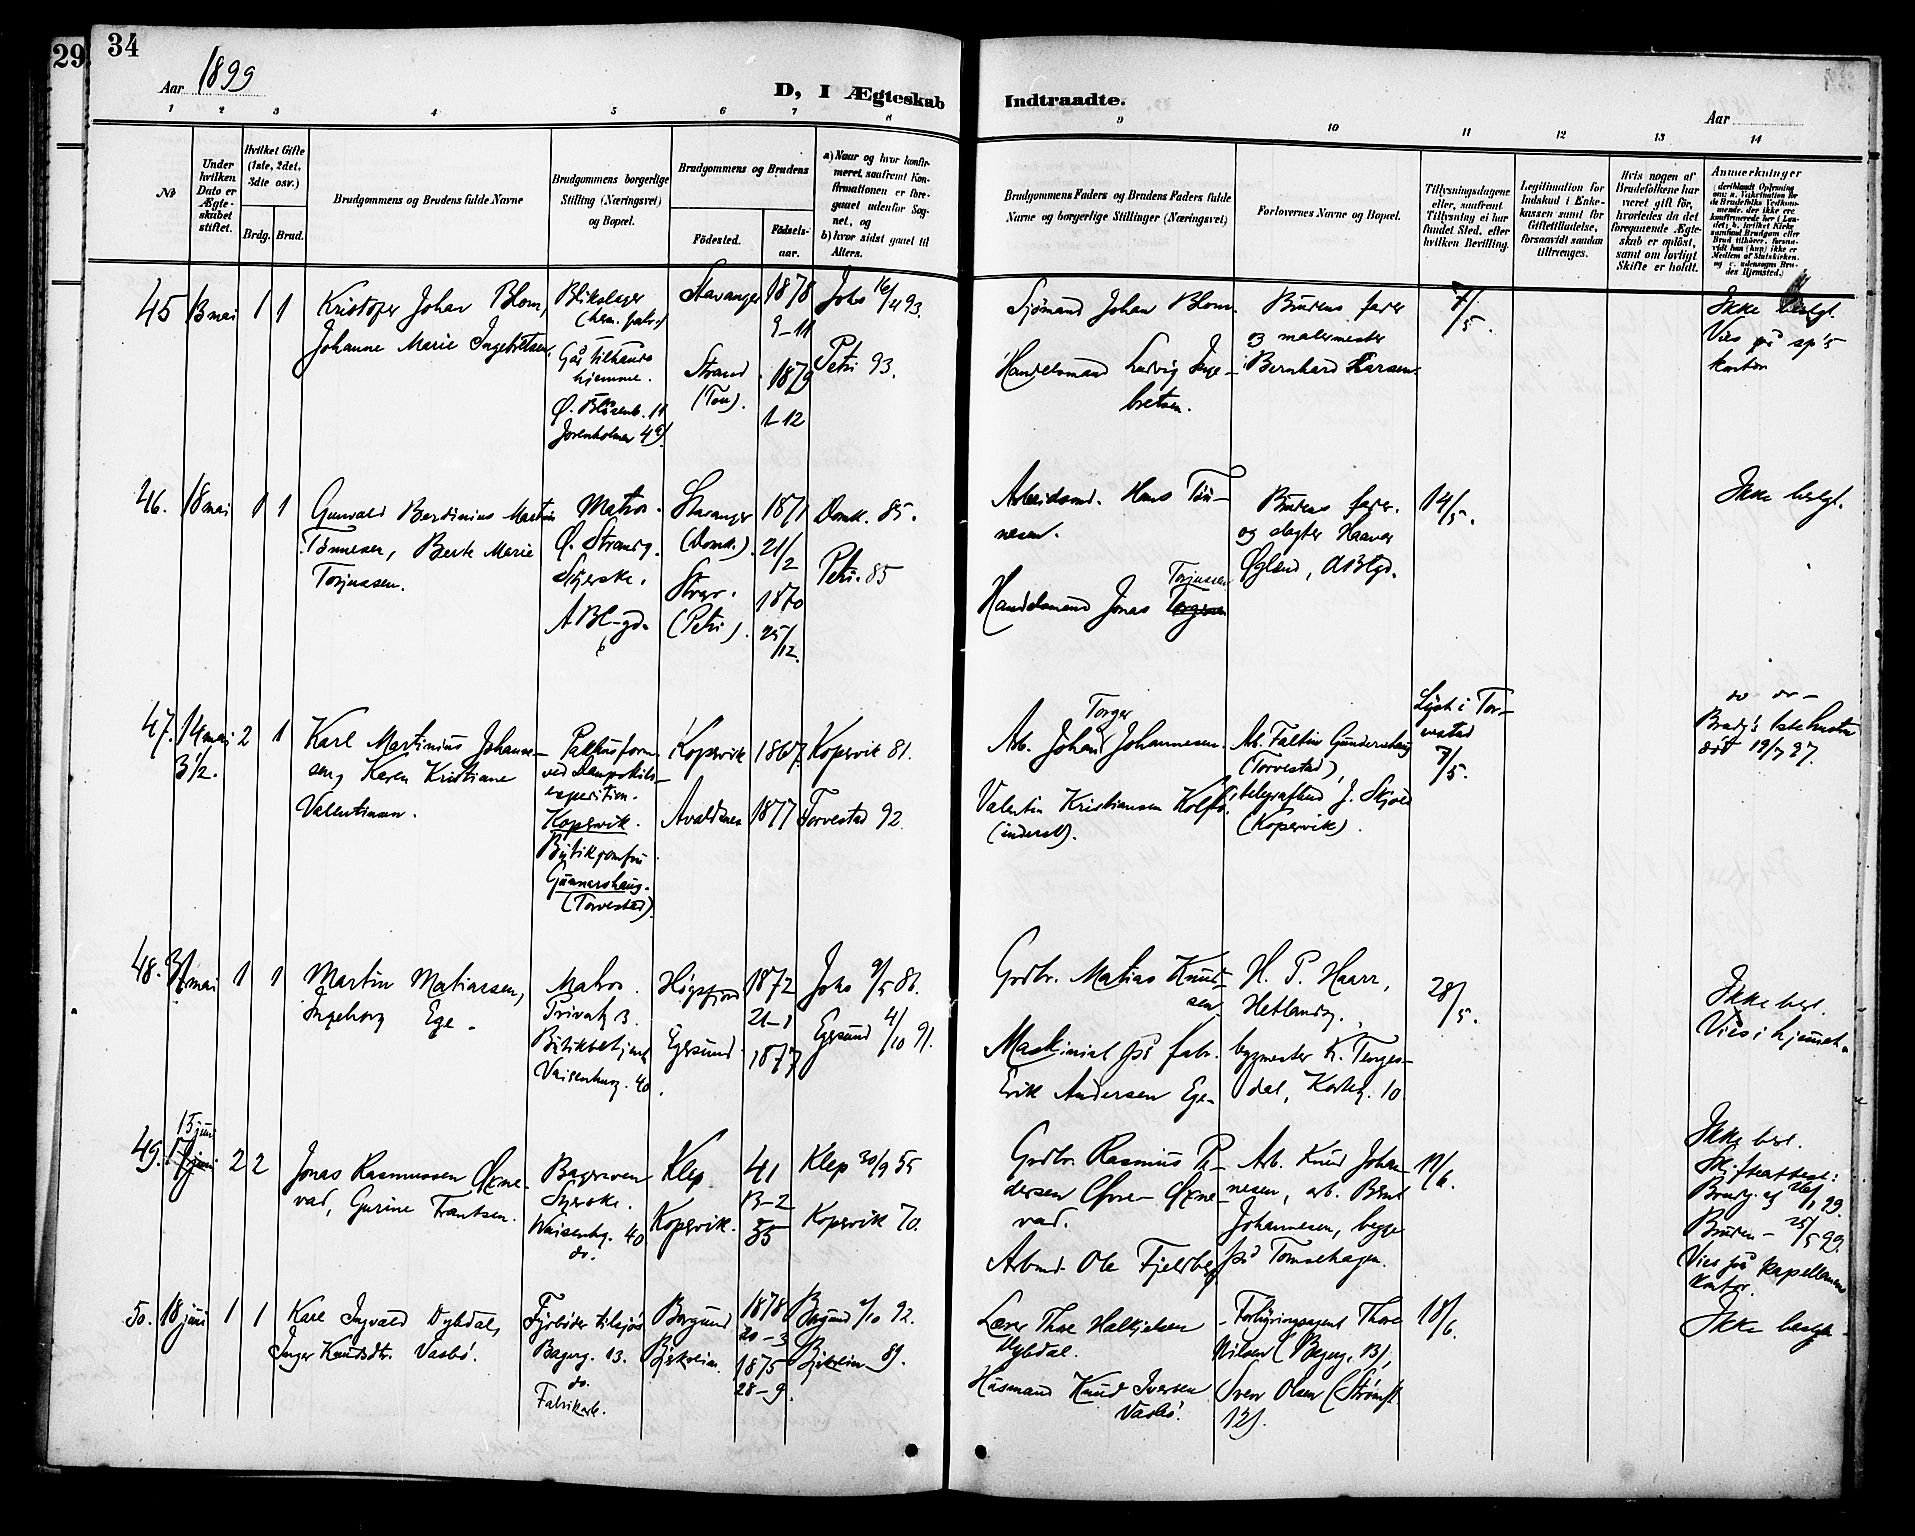 29
34
Aar 1899
D, I Ægteskab Indtraadte.
Aar
1 2 3 4 5 6 7 8 9 10 11 12 13 14
No
Under hvilken Dato er Ægteskabet stiftet.
Hvilket Gifte (1ste, 2det, 3die osv.)
Brdg. Brud.
Brudgommens og Brudens fulde Navne
Brudgommens borgerlige Stilling (Næringsvei) og Bopæl.
Brudgommens og Brudens
Fødested.
Fødselsaar.
a) Naar og hvor konfirmeret, saafremt Konfirmationen er foregaaet udenfor Sognet, og
b) hvor sidst gaaet til Alters.
Brudgommens Faders og Brudens Faders fulde Navne og borgerlige Stillinger (Næringsvei)
Forlovernes Navne og Bopæl.
Tillysningsdagene eller, saafremt Tillysning ei har fundet Sted, efter hvilken Bevilling.
Legitimation for Indskud i Enkekassen samt for Giftetilladelse, forsaavidt saadan tiltrænges.
Hvis nogen af Brudefolkene har været gift før, hvorledes da det foregaaende Ægteskab er opløst, samt om lovligt Skifte er holdt.
Anmærkninger
45 13 mai 1 1
Kristofer Johan Blom,
Johanne Marie Ingebretsen,
Blikslager
Går tilhånde
hjemme.
Ø. Blåsenb. 11
Jorenholmen 4a).
Stavanger 1878
9-11
Strand (Tou). 1879
1-12
Johs 16/4 93.
Petri 93.
Sjømand Johan Blom.
Handelsmand Ludvig Ingebretsen.
Brudens fader
og malermester
Bernhard Larsen.
7/5.
Ikke beslgt.
Vies på sp's
kontor
46. 18 mai 1 1
Gunvald Berdinius Martin
Tønnesen, Berte Marie
Torjussen.
Matros.
Ø. Strandg.
Syerske.
Stavanger
(Domk.).
Stvgr.
(Petri).
1871
21/2
1870
25/12.
Domk. 85.
Petri. 85
Arbeidsmd. Hans Tønnesen.
Handelsmand Jonas Torjussen
Brudens fader.
og slagter Haavar
Øglænd,
14/5.
Ikke beslgt.
47. 14 mai 2 1
3 1/2.
Karl Martinius Johannesen, Karen Kristiane
Valentinsen.
Pakhusform.
ved Dampskibsexpedition.
Kopervik.
Butikjomfru
Gunnarshaug.
(Torvestad).
Kopervik 1867.
Avaldsnes 1877
Kopervik 81.
Torvestad 92.
Arb. Johan Torger Johannesen.
Valentin Kristiansen
Arb. Faltin Gundershaug
(Torvestad),
telegrafbud J. Skjold
(Kopervik).
Lyst i Torvestad
7/5.
do do
Brudg's 1ste hustru
død 19/7 97.
48. 31 mai 1 1
Martin Matiassen,
Ingeborg Ege.
Matros.
Privatg 3.
Butikbetjent
Vaisenhusg. 40.
Høgsfjord 1872
21-1
Egersund. 1877
Johs 9/5 86.
Egersund 4/10 91.
Grdbr. Matias Knudsen.
Maskinist på fabr.
Erik Andersen Ege.
H. P. Haarr,
Hetlandsg.,
bygmester K. Tengesdal, Kirkeg. 10
28/5.
Ikke besl.
Vies i hjemmet.
49. 15 juni 2 2
Jonas Rasmussen Øxnevad, Gurine Frantsen.
Bagersven
Syerske.
Waisenhg. 40
do.
Klep 41
13-2
Kopervik. 55
Klep 30/9 55
Kopervik 70.
Grdbr. Rasmus Pedersen Øvre-Øxnevad.
Arbmd. Ole Fjeldberg
Arb. Knud Johannesen, arb. Bent
Johannesen, begge
på Tomsehagen.
11/6.
Ikke besl.
Skifteattest:
Brudg. af 26/1 99.
Bruden - 25/5 99.
Vies på kapellanens
kontor.
50. 18 juni 1 1
Karl Ingvald Dybdal,
Inger Knudsdtr. Vasbø.
Fyrbøder tilsjøs
Bagerg. 13.
do.
Fabrikarb.
Borgund 1878
20-3
Bjerkreim. 1875
28-9.
Borgund 2/10 92.
Bjerkreim 89.
Lærer Thore Halkjelsen
Dybdal.
Husmand Knud Iversen
Vasbø.
Forhyringsagent Thore
Nilsen (Bagerg. 13),
Sven Olsen (Strømst.
12).
18/6.
Ikke beslgt.